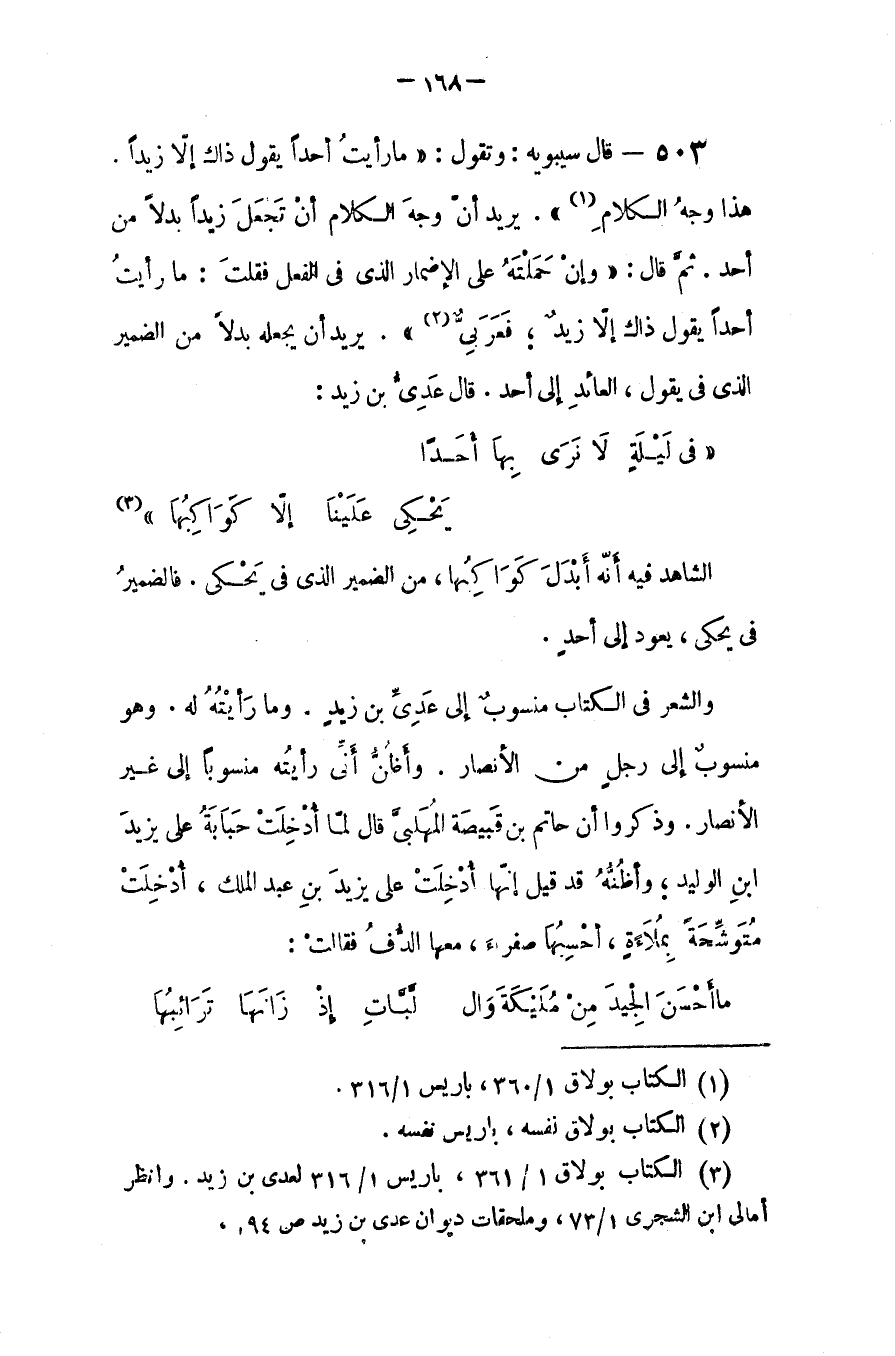 — ١٦٨ —
٥٠٣ — قال سيبويه : وتقول : « مارأيتُ أحداً يقول ذاك إلّا زيداً .
هذا وجهُ الكلامِ(١) » . يريد أنّ وجهَ الكلام أنْ تَجْعَلَ زيداً بدلاً من
أحد . ثمَّ قال : « وإنْ حَمَلْتَهُ على الإضمار الذى فى الفعل فقلتَ : ما رأيتُ
أحداً يقول ذاك إلّا زيدٌ ؛ فَعَرَبِيٌّ(٢) » . يريد أن يجعله بدلاً من الضمير
الذى فى يقول ، العائدِ إلى أحد . قال عَدِىُّ بن زيد :
« فى لَيْلَةٍ لَا نَرَى بِهَا أَحَدًا
يَحْكِى عَلَيْنَا إلّا كَوَاكِبُهَا »(٣)
الشاهد فيه أَنّه أَبْدَلَ كَوَاكِبُها ، من الضمير الذى فى يَحْكى . فالضميرُ
فى يحكى ، يعود إلى أحدٍ .
والشعر فى الكتاب منسوبٌ إلى عَدِىِّ بن زيدٍ . وما رَأَيْتُهُ له . وهو
منسوبٌ إلى رجلٍ من الأنصار . وأَظُنُّ أَنِّى رأيتُه منسوباً إلى غير
الأنصار . وذكروا أن حاتم بن قَبيصَة المُهَلبىَّ قال لمّا أُدْخِلَتْ حَبَابَةُ على يزيدَ
ابنِ الوليد ؛ وأظُنُّهُ قد قيل إنّها أُدْخِلَتْ على يزيدَ بنِ عبد الملك ، أُدْخِلَتْ
مُتَوَشِّحَةً بِمُلَاءَةٍ ، أحْسِبُهَا صفراء ، معها الدُّفُ فقالتْ :
ماأَحْسَنَ الْجِيدَ مِنْ مُلَيْكَةَ وَال لَّبَّاتِ إِذْ زَانَهَا تَرَائِبُهَا
(١) الكتاب بولاق ٣٦٠/١ ، باريس ٣١٦/١ .
(٢) الكتاب بولاق نفسه ، باريس نفسه .
(٣) الكتاب بولاق ١ / ٣٦١ ، باريس ١/ ٣١٦ لعدى بن زيد . وانظر
أمالى ابن الشجرى ٧٣/١ ، وملحقات ديوان عدى بن زيد ص ٩٤ .